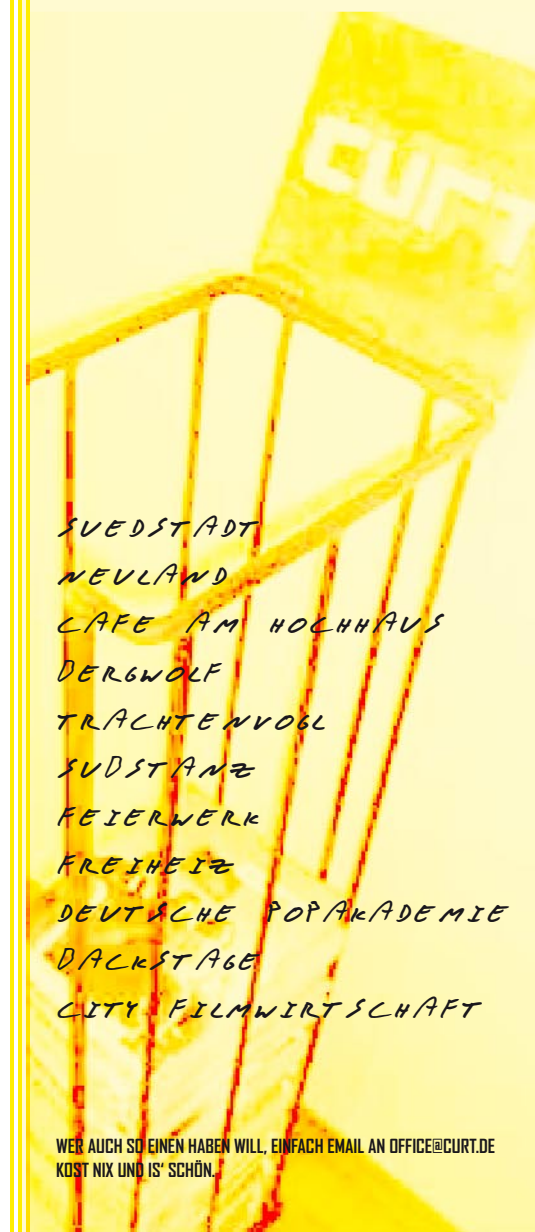 CURT
SUEDSTADT
NEULAND
CAFE AM HOCHHAUS
BERGWOLF
TRACHTENVOGL
SUBSTANZ
FEIERWERK
FREIHEIZ
DEUTSCHE POPAKADEMIE
BACKSTAGE
CITY FILMWIRTSCHAFT
WER AUCH SO EINEN HABEN WILL, EINFACH EMAIL AN OFFICE@CURT.DE
KOST NIX UND IS' SCHÖN.